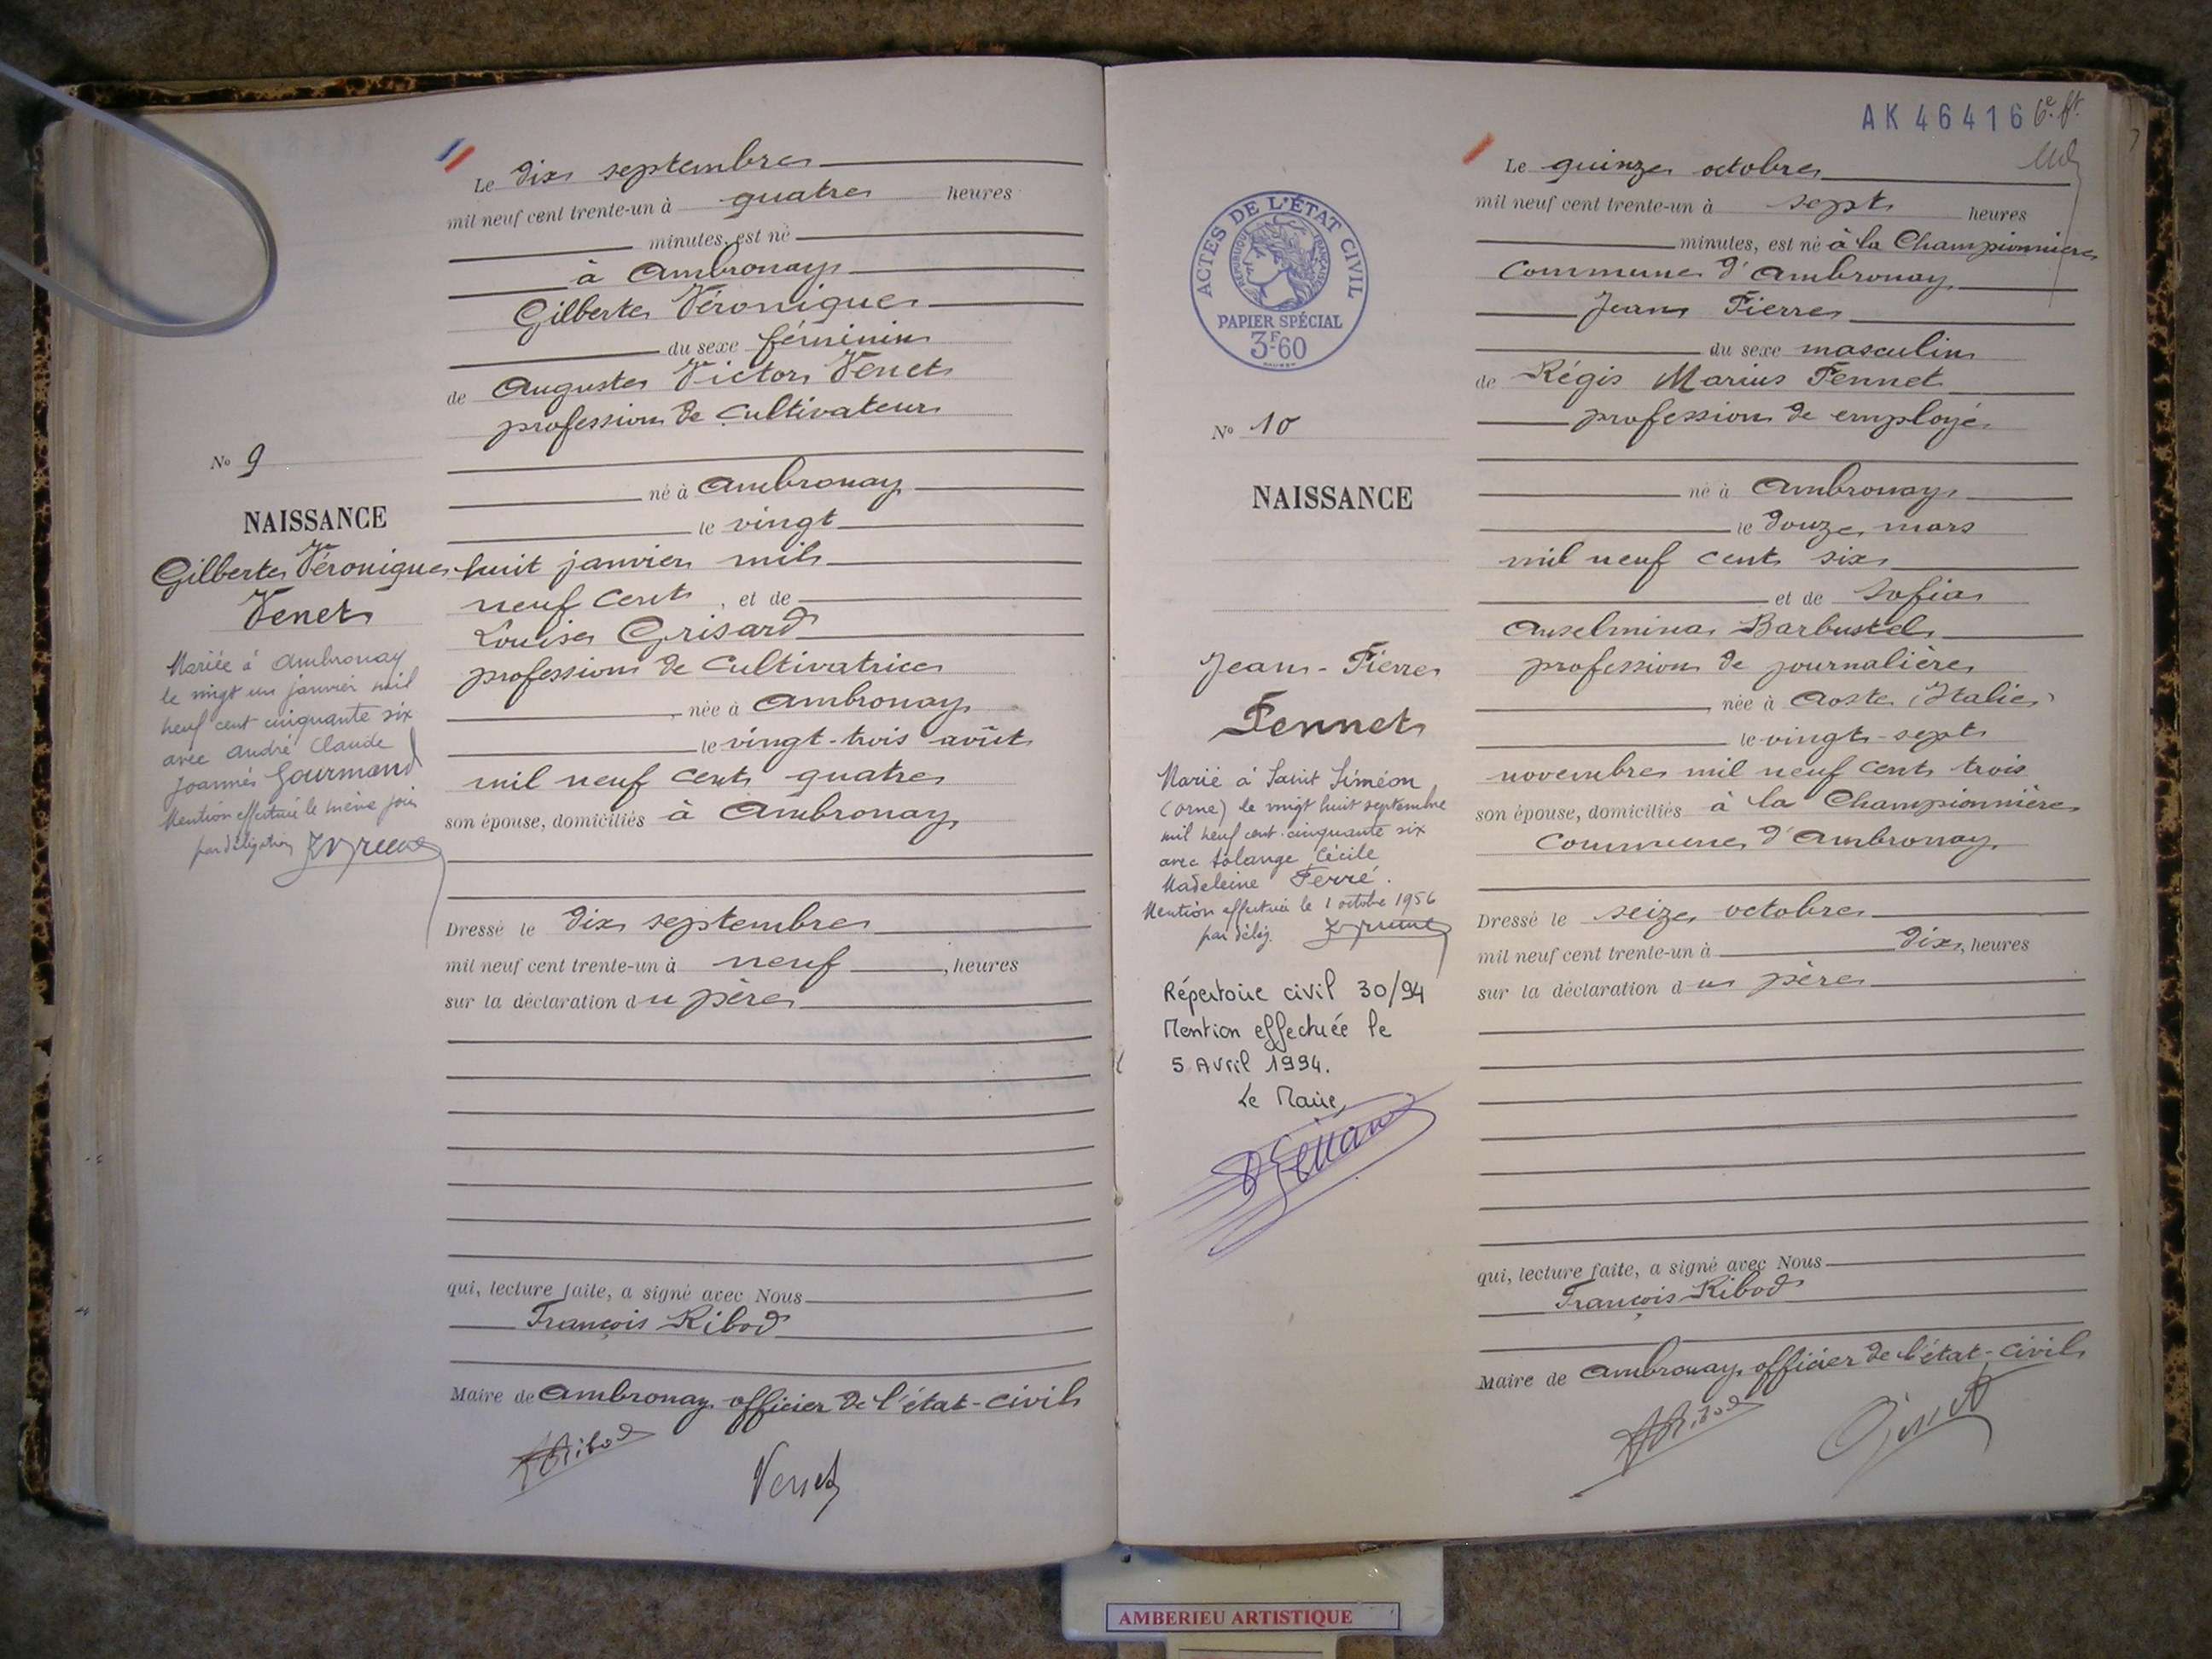 Le dix septembre
mil neuf cent trente-un à quatre heures
minutes, est né
à Ambronay
Gilberte Véronique
du sexe féminin
de Auguste Victor Venet
profession de cultivateur
né à Ambronay
le vingt
huit janvier mil
neuf cent, et de
Louise Grisard
profession de cultivatrice
née à Ambronay
le vingt-trois août
mil neuf cent quatre
son épouse, domiciliés à Ambronay
Dressé le dix septembre
mil neuf cent trente-un à neuf, heures
sur la déclaration du père
qui, lecture faite, a signé avec Nous
François Ribod
Maire de Ambronay officier de l'état-civil
Ribod
Venet
No 9
NAISSANCE
Gilberte Véronique
Venet
Mariée à Ambronay
le vingt un janvier mil
neuf cent cinquante six
avec André Claude
Joannès Gourmand
Mention effectuée le même jour
par délégation
AK 46416 6e ft
ACTES DE L'ÉTAT CIVIL
RÉPUBLIQUE FRANÇAISE
PAPIER SPÉCIAL
3F60
No 10
NAISSANCE
Jean-Pierre
Pennet
Marié à Saint Siméon
(Orne) le vingt huit septembre
mil neuf cent cinquante six
avec Solange Cécile
Madeleine Ferré.
Mention effectuée le 1 octobre 1956
par délég.
Répertoire civil 30/94
Mention effectuée le
5 Avril 1994.
Le Maire,
Le quinze octobre
mil neuf cent trente-un à sept heures
minutes, est né à la Championnière
Commune d'Ambronay
Jean Pierre
du sexe masculin
de Régis Marius Pennet
profession de employé
né à Ambronay
le douze mars
mil neuf cent six
et de Sofia
Anselmina Barbustel
profession de journalière
née à Aoste (Italie)
le vingt-sept
novembre mil neuf cent trois
son épouse, domiciliés à la Championnière
Commune d'Ambronay
Dressé le seize octobre
mil neuf cent trente-un à dix, heures
sur la déclaration du père
qui, lecture faite, a signé avec Nous
François Ribod
Maire de Ambronay officier de l'état-civil
Ribod
AMBERIEU ARTISTIQUE